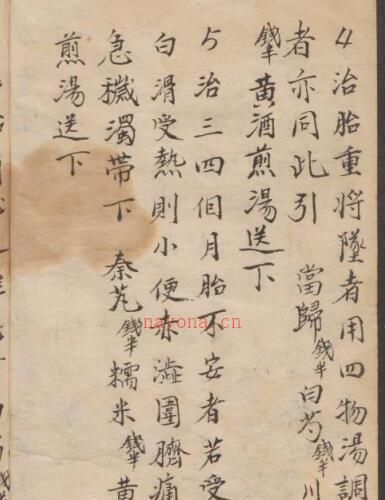 4治胎重將墜者用四物湯調
者亦同此引 當歸錢半白芍錢半川
錢半黃酒煎湯送下
5治三四個月胎不安者若受
白滑受熱則小便赤澁圍臍痛
急穢濁帶下 秦艽錢半糯米錢半黃
煎湯送下
nayona.cn